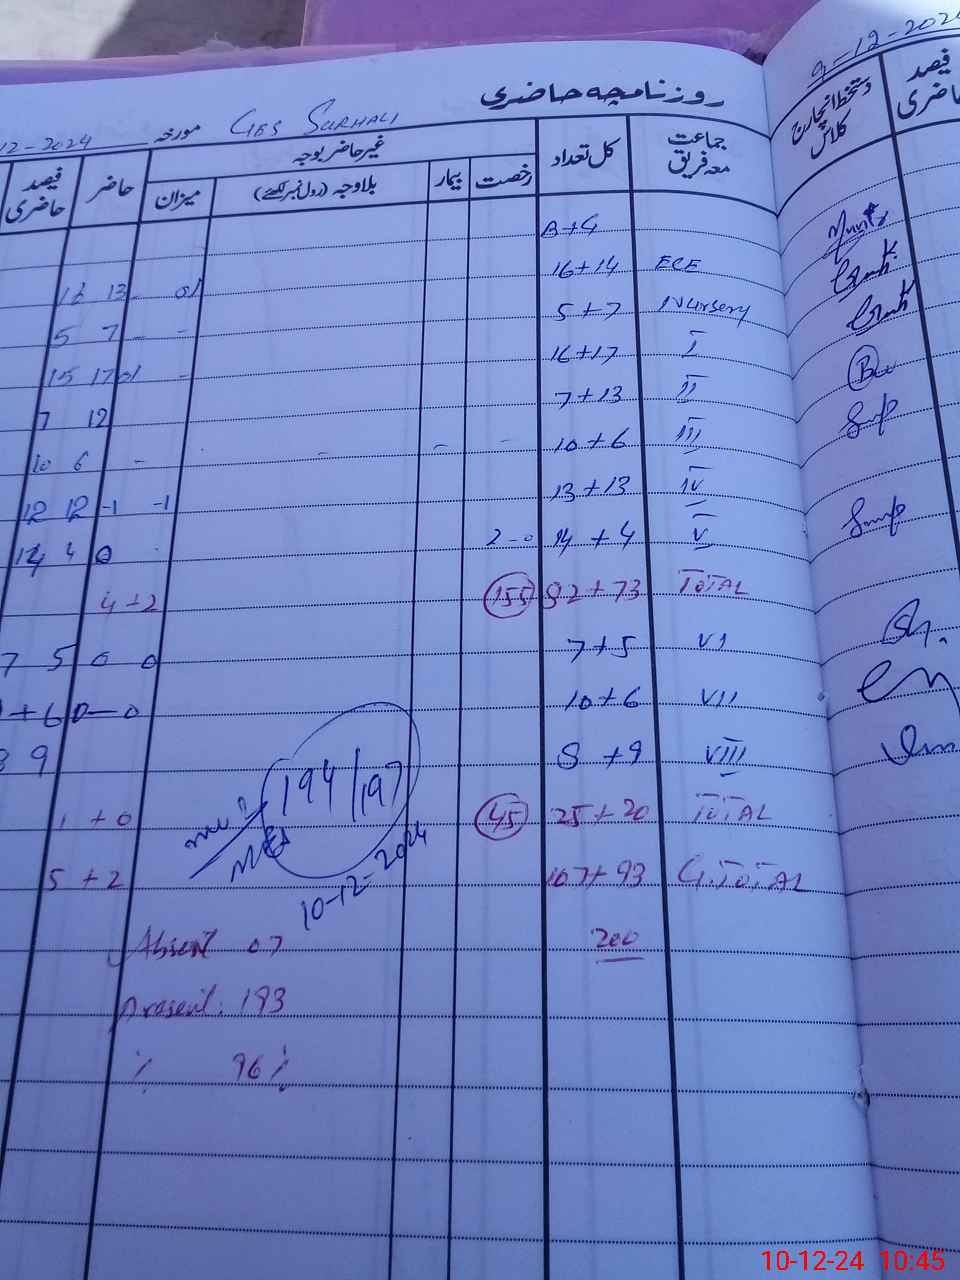 9-12-202
روزنامچہ حاضری
12-2024 مورخہ GES SURHALI
جماعت معہ فریق کل تعداد غیر حاضر بوجہ حاضر فیصد حاضری
رخصت بیمار بلاوجہ (رول نمبر لکھئے) میزان
دستخط انچارج کلاس فیصد حاضری
B+G
ECE 16+14 01 13
Nursery 5+7 - - 7 5
I 16+17 - 01 17 15
II 7+13 12 7
III 10+6 - - - - 6 10
IV 13+13 -1 -1 12 12
V 14+4 2-0 0 4 14
TOTAL 82+73 155 4+2
VI 7+5 0 0 5 7
VII 10+6 0-0 +6
VIII 8+9 9 8
TOTAL 25+20 45 1+0
G.TOTAL 107+93 5+2
200
194/197
MEA
10-12-2024
Absent 07
Present: 193
% 96%
10-12-24 10:45